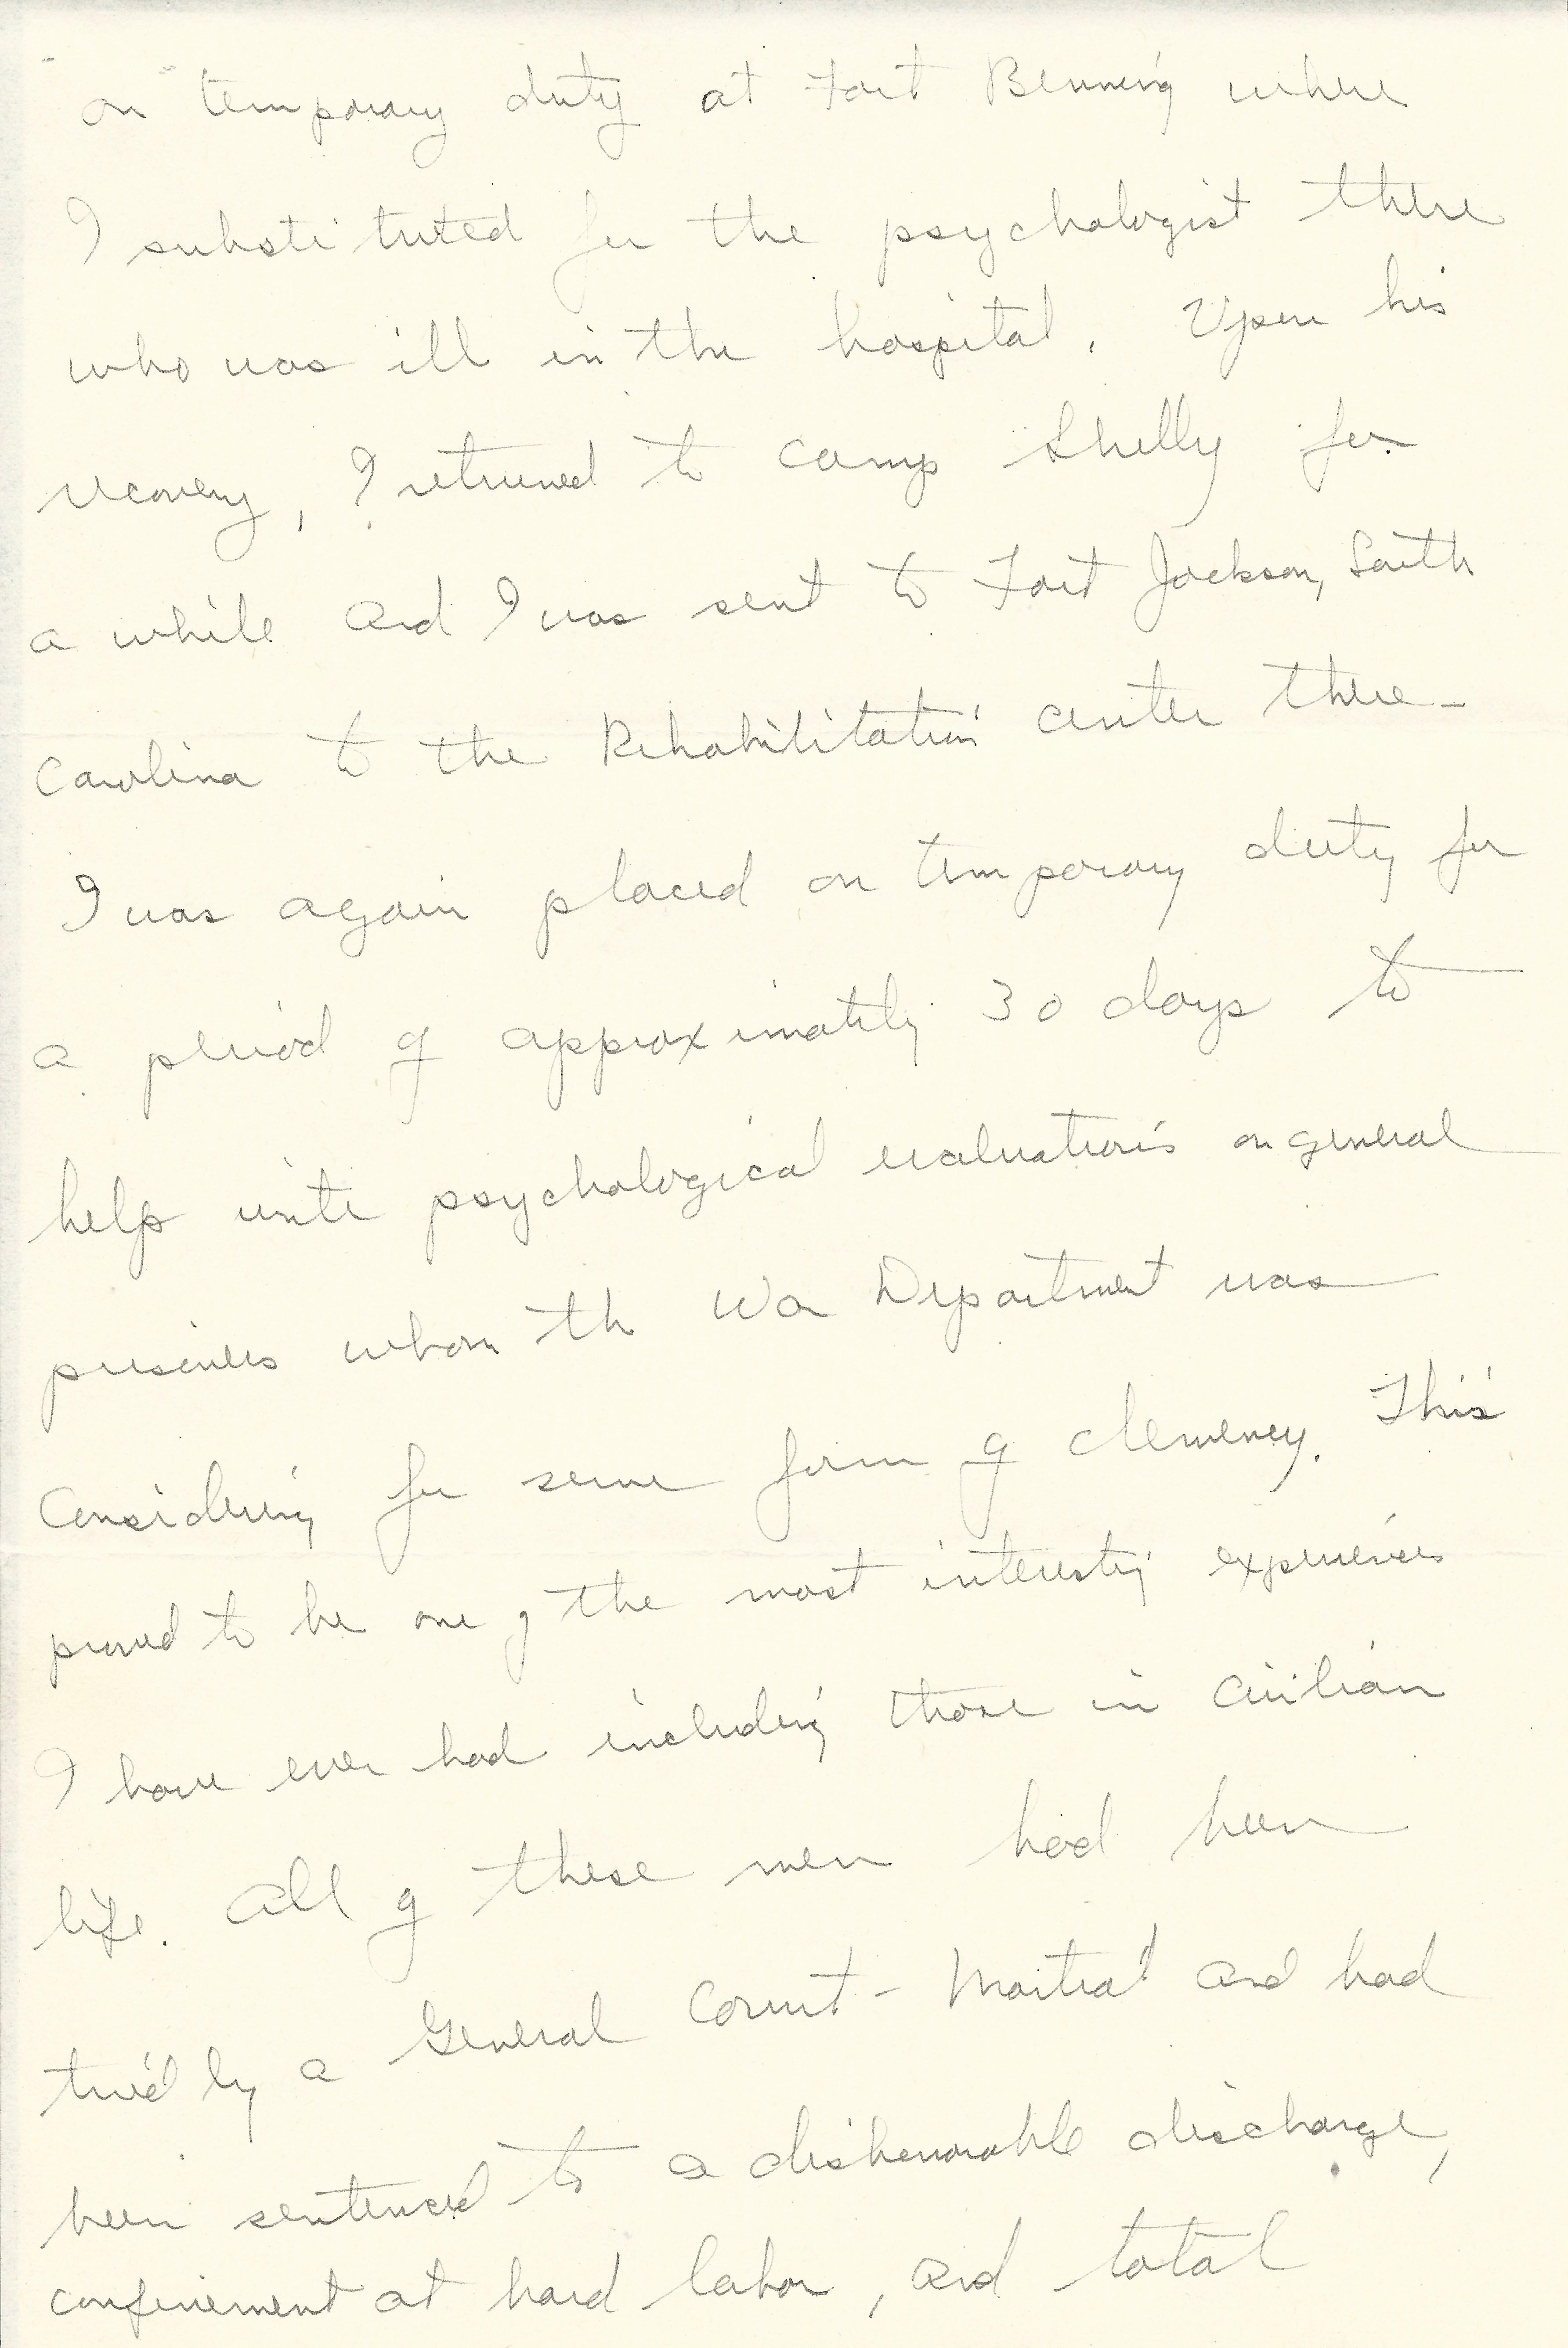 on temporary duty at Fort Benning where
I substituted for the psychologist there
who was ill in the hospital. Upon his
recovery, I returned to Camp Shelly for
a while and I was sent to Fort Jackson, South
Carolina to the Rehabilitation center there-
I was again placed on temporary duty for
a period of approximately 30 days to
help write psychological evaluations on general
prisoners whom th War Department was
Considering for some form of clemency. This
proved to be one of the most interesting experiences
I have ever had including those in civilian
life. All of these men had been
tried by a General Court-Martial and had
been sentenced to a dishonorable discharge,
confinement at hard labor, and total